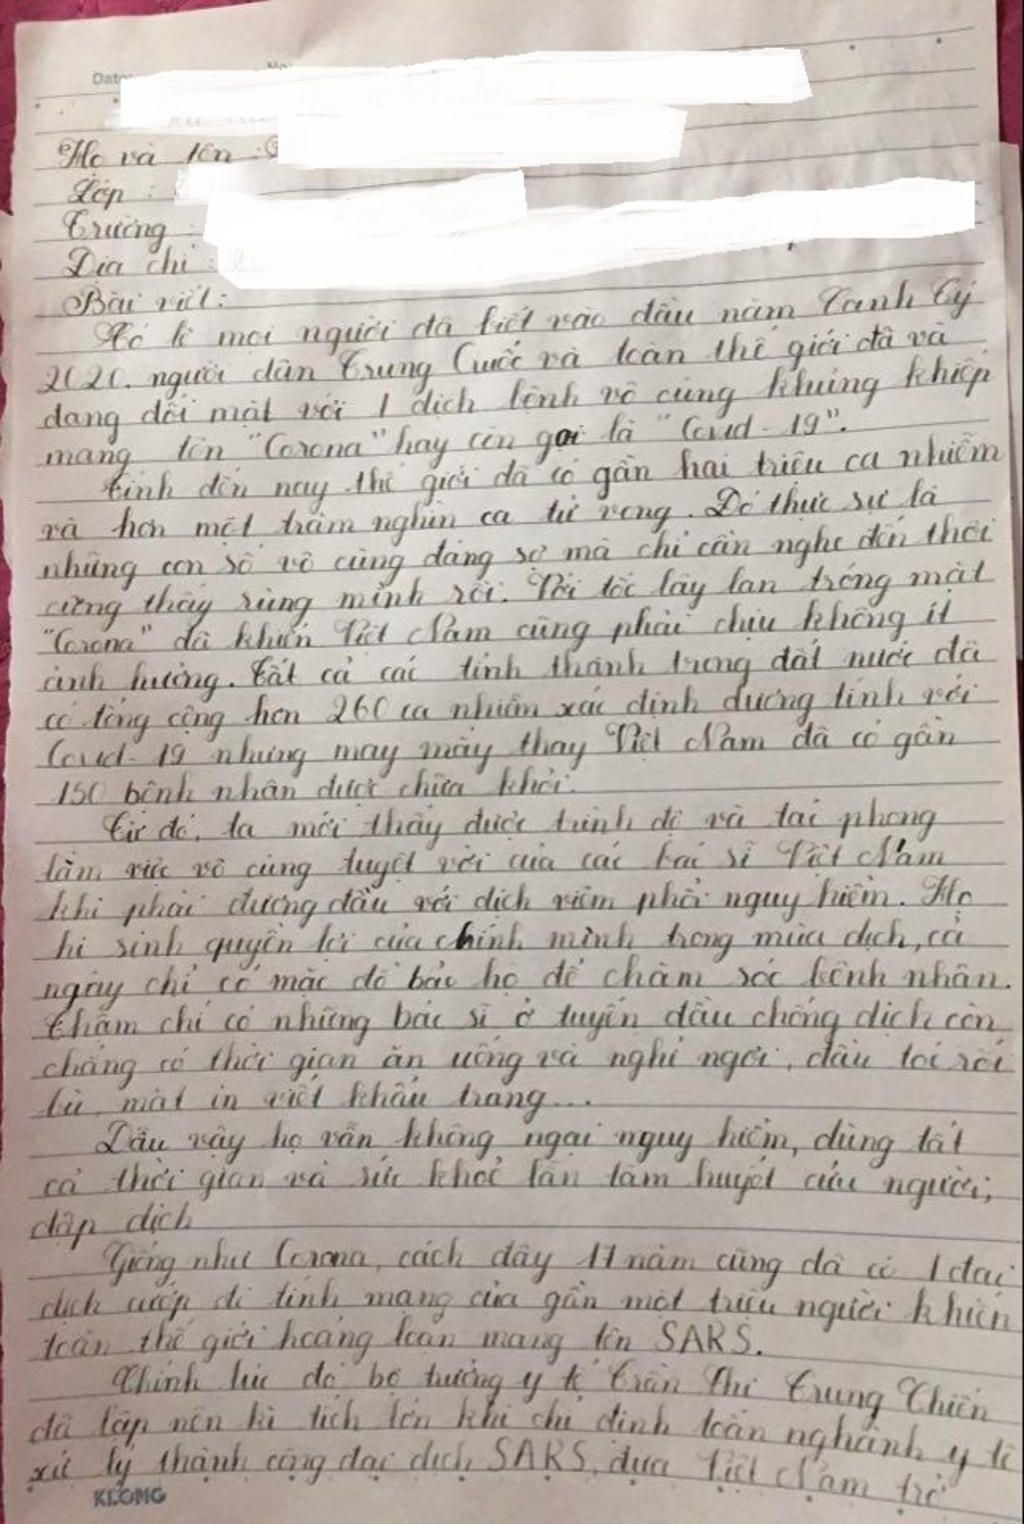 Date: No:
Họ và tên :
Lớp :
Trường :
Địa chỉ :
Bài viết :
Có lẽ mọi người đã biết vào đầu năm Canh Tý
2020. người dân Trung Quốc và toàn thế giới đã và
đang đối mặt với 1 dịch bệnh vô cùng khủng khiếp
mang tên "Corona" hay còn gọi là "Covid - 19".
Tính đến nay thế giới đã có gần hai triệu ca nhiễm
và hơn một trăm nghìn ca tử vong. Đó thực sự là
những con số vô cùng đáng sợ mà chỉ cần nghe đến thôi
cũng thấy rùng mình rồi. Với tốc lây lan trong mặt
"Corona" đã khiến Việt Nam cũng phải chịu không ít
ảnh hưởng. Tất cả các tỉnh thành trong đất nước đã
có tổng cộng hơn 260 ca nhiễm xác định dương tính với
Covid - 19 nhưng may mắy thay Việt Nam đã có gần
150 bệnh nhân được chữa khỏi.
Từ đó, ta mới thấy được trình độ và tái phong
làm việc vô cùng tuyệt vời của các bác sĩ Việt Nam
khi phải đương đầu với dịch viêm phổi nguy hiểm. Họ
hi sinh quyền lợi của chính mình trong mùa dịch, cả
ngày chỉ có mặc đồ bảo hộ để chăm sóc bệnh nhân.
Thậm chí có những bác sĩ ở tuyến đầu chống dịch còn
chẳng có thời gian ăn uống và nghỉ ngơi, đầu tóc rối
bù, mặt in viết khẩu trang...
Dẫu vậy họ vẫn không ngại nguy hiểm, dùng tất
cả thời gian và sức khoẻ lẫn tâm huyết cứu người,
dập dịch
Giống như Corona, cách đây 17 năm cũng đã có 1 đại
dịch cướp đi tính mạng của gần một triệu người khiến
toàn thế giới hoảng loạn mang tên SARS.
Chính lúc đó bộ trưởng y tế Trần Thị Trung Chiến
đã lập nên kì tích lớn khi chỉ định toàn nghành y tế
xử lý thành công đại dịch SARS, đưa Việt Nam trở
KLONG